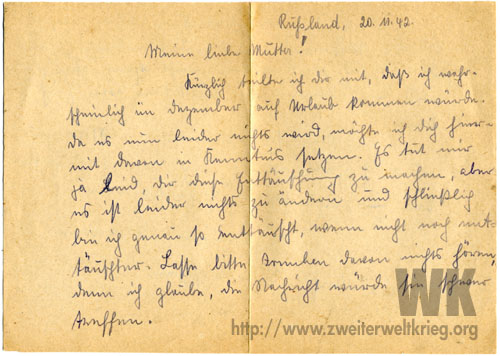 Rußland, 20. 11. 42.
Meine liebe Mutter!
Kürzlich teilte ich dir mit, daß ich wahr-
scheinlich im dezember auf Urlaub kommen würde.
da es nun leider nichts wird, möchte ich dich hier-
mit davon in Kenntnis setzen. Es tut mir
ja leid, dir diese Enttäuschung zu machen, aber
es ist leider nichts zu ändern und schließlich
bin ich genau so enttäuscht, wenn nicht noch ent-
täuschter. Lasse bitte davon nichts hören,
denn ich glaube, die Nachricht würde sie schwer
treffen.
WK
http://www.zweiterweltkrieg.org